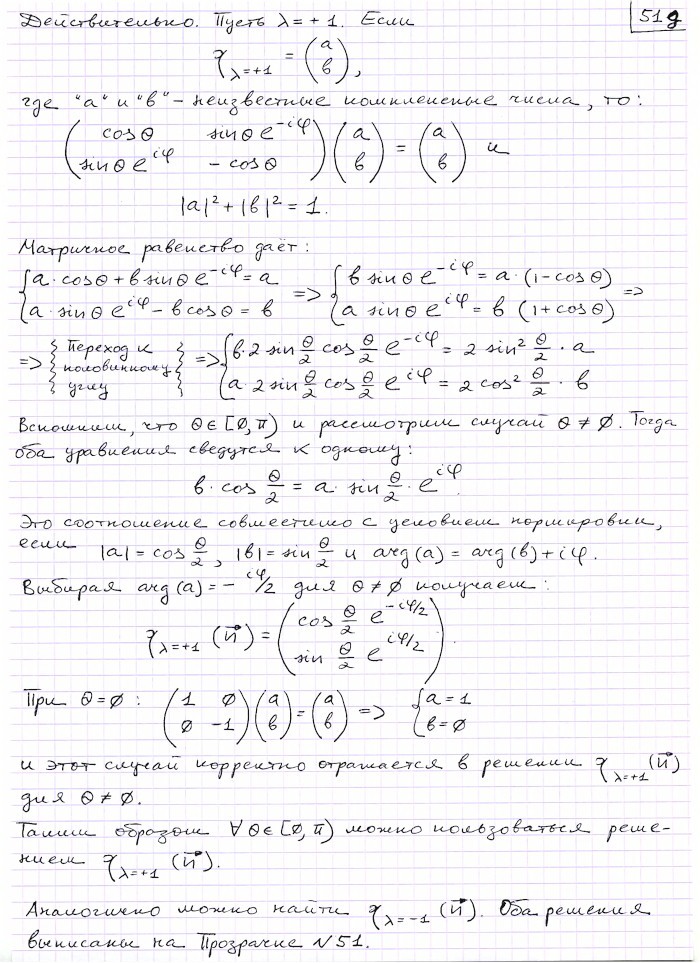 Действительно. Пусть λ = + 1. Если
51д
χ_{λ=+1} = (a b),
где "а" и "в" - неизвестные комплексные числа, то:
(cosθ sinθ e^{-iφ} sinθ e^{iφ} - cosθ) (a b) = (a b) и
|a|² + |b|² = 1.
Матричное равенство даёт:
{a·cosθ + b sinθ e^{-iφ} = a => {b sinθ e^{-iφ} = a·(1-cosθ) =>
a·sinθ e^{iφ} - b cosθ = b a sinθ e^{iφ} = b (1+cosθ)
=> {Переход к половинному углу} => {b·2 sin θ/2 cos θ/2 e^{-iφ} = 2 sin² θ/2 · a
a·2 sin θ/2 cos θ/2 e^{iφ} = 2 cos² θ/2 · b
Вспомним, что θ∈[0,π) и рассмотрим случай θ ≠ 0. Тогда
оба уравнения сведутся к одному:
b·cos θ/2 = a·sin θ/2 · e^{iφ}.
Это соотношение совместимо с условием нормировки,
если |a| = cos θ/2, |b| = sin θ/2 и arg(a) = arg(b) + iφ.
Выбирая arg(a) = - iφ/2 для θ ≠ 0 получаем:
χ_{λ=+1} (n⃗) = (cos θ/2 e^{-iφ/2} sin θ/2 e^{iφ/2}).
При θ = 0: (1 0 0 -1) (a b) = (a b) => {a = 1 b = 0
и этот случай корректно отражается в решении χ_{λ=+1}(n⃗)
для θ ≠ 0.
Таким образом ∀ θ∈[0,π) можно пользоваться реше-
нием χ_{λ=+1} (n⃗).
Аналогично можно найти χ_{λ=-1} (n⃗). Оба решения
выписаны на Прозрачке N51.